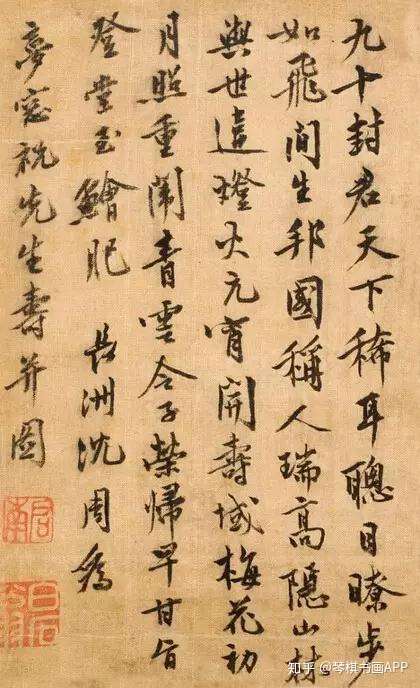 九十封君天下稀耳聰目瞭步
如飛間生邦國稱人瑞高隱山林
與世違燈火元宵開壽域梅花初
月照重闈青雲令子榮歸早甘旨
登堂玉鱠肥 長洲沈周為
夢窓祝先生壽并圖
啟南
白石翁
知乎 @琴棋书画APP